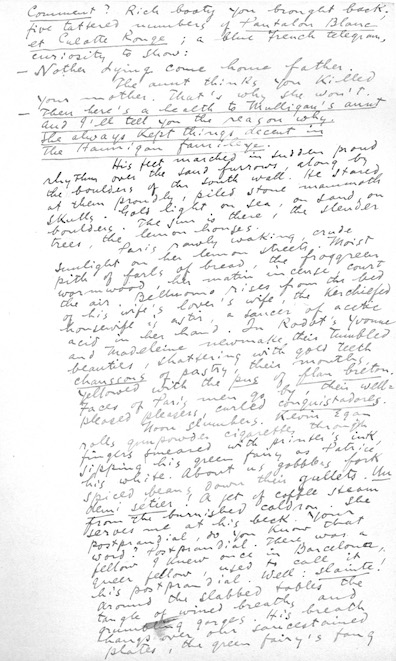 Comment? Rich booty you brought back;
five tattered numbers of Pantalon Blanc
et Culotte Rouge; a blue French telegram,
curiosity to show:
— Nother dying come home father.
The aunt thinks you killed
your mother. That's why she won't.
— Then here's a health to Mulligan's aunt
And I'll tell you the reason why
She always kept things decent in
The Hannigan famileye.
His feet marched in sudden proud
rhythm over the sand furrows, along by
the boulders of the south wall. He stared
at them proudly, piled stone mammoth
skulls. Gold light on sea, on sand, on
boulders. The sun is there, the slender
trees, the lemon houses.
Paris rawly waking, crude
sunlight on her lemon streets. Moist
pith of farls of bread, the froggreen
wormwood, her matin incense, court
the air. Belluomo rises from the bed
of his wife's lover's wife, the kerchiefed
housewife is astir, a saucer of acetic
acid in her hand. In Rodot's Yvonne
and Madeleine newmake their tumbled
beauties, shattering with gold teeth
chaussons of pastry, their mouths
yellowed with the pus of flan breton.
Faces of Paris men go by, their well-
pleased pleasers, curled conquistadores.
Noon slumbers. Kevin Egan
rolls gunpowder cigarettes through
fingers smeared with printer's ink,
sipping his green fairy as Patrice
his white. About us gobblers fork
spiced beans down their gullets. Un
demi setier! A jet of coffee steam
from the burnished caldron. She
serves me at his beck.
postprandial, do you know that
word? Postprandial. There was a
fellow I knew once in Barcelona,
queer fellow, used to call it
his postprandial. Well: slainte!
Around the slabbed tables the
tangle of wined breaths and
grumbling gorges. His breath
hangs over our saucestained
plates, the green fairy's fang